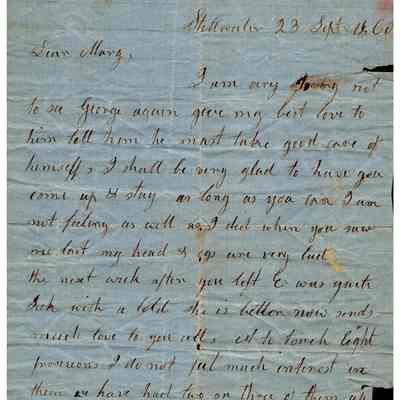 Stillwater 23 Sept 1860
Dear Mary,
I am very sorry not
to see George again give my best love to
him tell him he must take good care of
himself, I shall be very glad to have you
come up & stay as long as you can I am
not feeling as well as I did when you saw
me last my head & are very bad
the next week after you left E was quite
sick with a cold she is better now sends
much love to you all, as to touch light
provisions I do not feel much interest in
them we have had two or three of them up